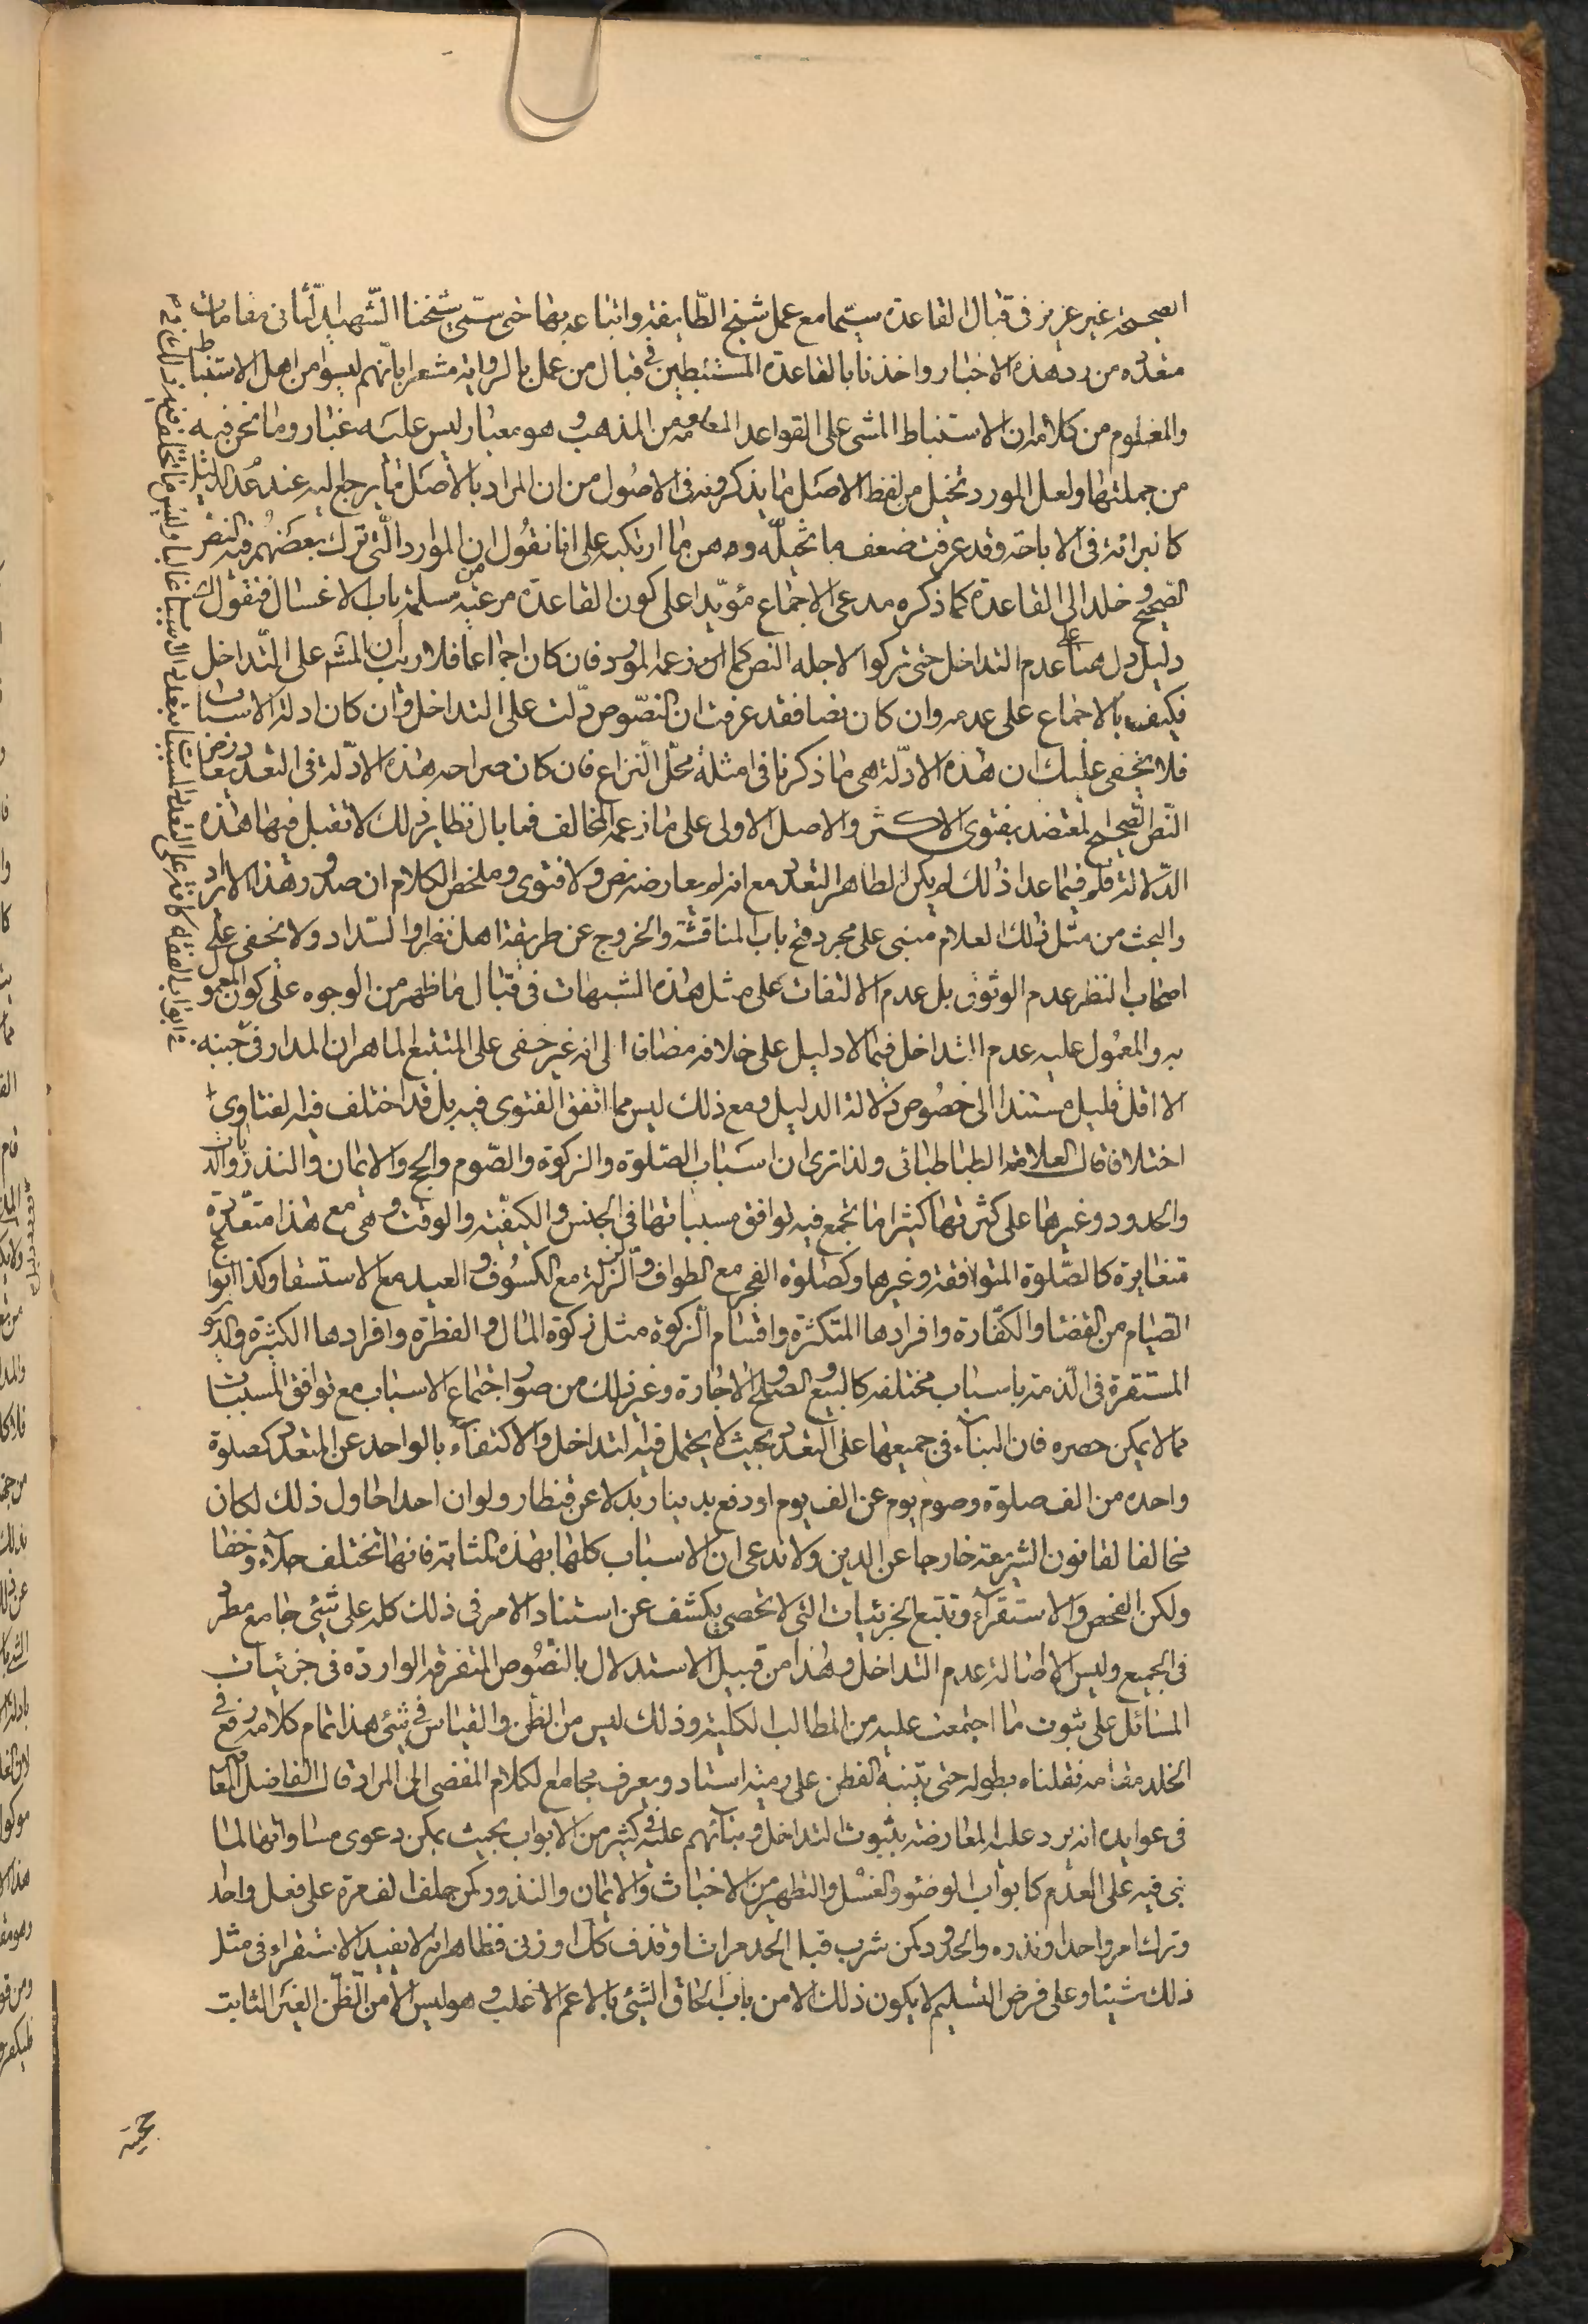 الصحيحة غير عزيز في قبال القاعدة سيما مع عمل شيخ الطايفة واتباعه بها حتى سمى شيخنا الشهيد الثاني في مقامات
متعدده من رد هذه الاخبار واخذنا بالقاعدة المستنبطين في قبال من عمل بالرواية مشعرا بانهم ليسوا من اهل الاستنباط
والمعلوم من كلامه ان الاستنباط المشي على القواعد المعلومة من المذهب وهو معيار ليس عليه غبار وما نحن فيه
من جملتها ولعل المورد تخيل من لفظ الاصل مما يذكرونه في الاصول من ان المراد بالاصل ما يرجع اليه عند عدم الدليل
كالبرائة في الاباحة وقد عرفت ضعف ما تخيله ووهن ما ارتكبه على انا نقول ان الموارد التي ترك بعضهم فيه النص
الصحيح وخلد الى القاعدة كما ذكره مدعي الاجماع مؤيدا على كون القاعدة مرعية مسلمة من باب الاغسال فنقول اي
دليل دل هنا على عدم التداخل حتى تركوا لاجله النص كما زعمه المورد فان كان اجماعا فلا ريب ان المشهور على التداخل
فكيف بالاجماع على عدمه وان كان نصا فقد عرفت ان النصوص دلت على التداخل وان كان ادلة الاسباب
فلا يخفى عليك ان هذه الادلة هي ما ذكرنا في امثلة محل النزاع فان كان صراحه هذه الادلة في التعدد يعارض
النص الصحيح المعتضد بفتوى الاكثر والاصل الاولى على ما زعمه المخالف فما بال نظاير ذلك لا تقبل فيها هذه
الدلالة فلو فيما عدا ذلك لم يكن الظاهر التعدد مع انه لم يعارضه نص ولا فتوى وملخص الكلام ان صدور هذا الايراد
والبحث من مثل ذلك العلام مبني على مجرد فتح باب المناقشة والخروج عن طريقة اهل النظر والسداد ولا يخفى على
اصحاب النظر عدم الوثوق بل عدم الالتفات على مثل هذه الشبهات في قبال ما ظهر من الوجوه على كون المعمول
به والمعمول عليه عدم التداخل فيما لا دليل على خلافه مضافا الى انه غير خفي على المتتبع الماهر ان المدار في جنبه
الا اقل قليل مستندا الى خصوص دلالة الدليل ومع ذلك ليس مما اتفق الفتوى فيه بل قد اختلف فيه الفتاوى
اختلافا قال العلامة الطباطبائي ولذا ترى ان اسباب الصلوة والزكوة والصوم والحج والايمان والنذور والديات
والحدود وغيرها على كثرتها كثيرا ما تجمع فيه توافق مسبباتها في الجنس والكيفية والوقت وهي مع هذا متعددة
متغايرة كالصلوة المتوافقة وغيرها وكصلوة الفجر مع الطواف والزلزلة مع الكسوف والعيد مع الاستسقا وكذا انواع
الصيام من القضا والكفارة وافرادها المتكثرة واقسام الزكوة مثل زكوة المال والفطرة وافرادها الكثيرة والديون
المستقرة في الذمة باسباب مختلفة كالبيع والصلح والاجارة وغير ذلك من صور اجتماع الاسباب مع توافق المسببات
مما لا يمكن حصره فان البناء في جميعها على التعدد بحيث لا يحتمل فيه التداخل والاكتفاء بالواحد عن المتعدد كصلوة
واحده من الف صلوة وصوم يوم عن الف يوم او دفع بدينار بدلا عن قنطار ولو ان احدا حاول ذلك لكان
مخالفا لقانون الشريعة خارجا عن الدين ولا ندعى ان الاسباب كلها بهذه المثابة فانها تختلف جلاء وخفا
ولكن الفحص والاستقراء وتتبع الجزئيات التي لا تحصى يكشف عن استناد الامر في ذلك كله على شئ جامع مطرد
في الجميع وليس الا اصالة عدم التداخل وهذا من قبيل الاستدلال بالنصوص المتفرقة الوارده في جزئيات
المسائل على ثبوت ما اجتمعت عليه من المطالب الكلية وذلك ليس من الظن والقياس في شئ هذا تمام كلامه رفع في
الخلد مقامه فنقلناه بطوله حتى يتنبه الفطن على رمية استاد ويعرف مجامع الكلام المفضى الى المراد قال الفاضل المعاصر
في عوايده انه يرد عليه المعارضة بثبوت التداخل وبنائهم عليه في كثير من الابواب بحيث يمكن دعوى مساواتها لما
بني فيه على العدم كابواب الوضوء والغسل والتطهير من الاخباث والايمان والنذور كمن حلف الف مرة على فعل واحد
وترك امر واحد او نذره والحدود كمن شرب قبل الحد مرات او قذف كذا او زنى فظاهر انه لا يفيد الاستقراء في مثل
ذلك شيئا وعلى فرض التسليم لا يكون ذلك الا من باب الحاق الشئ بالاعم الاغلب وهو ليس الا من الظن الغير الثابت
حجيته